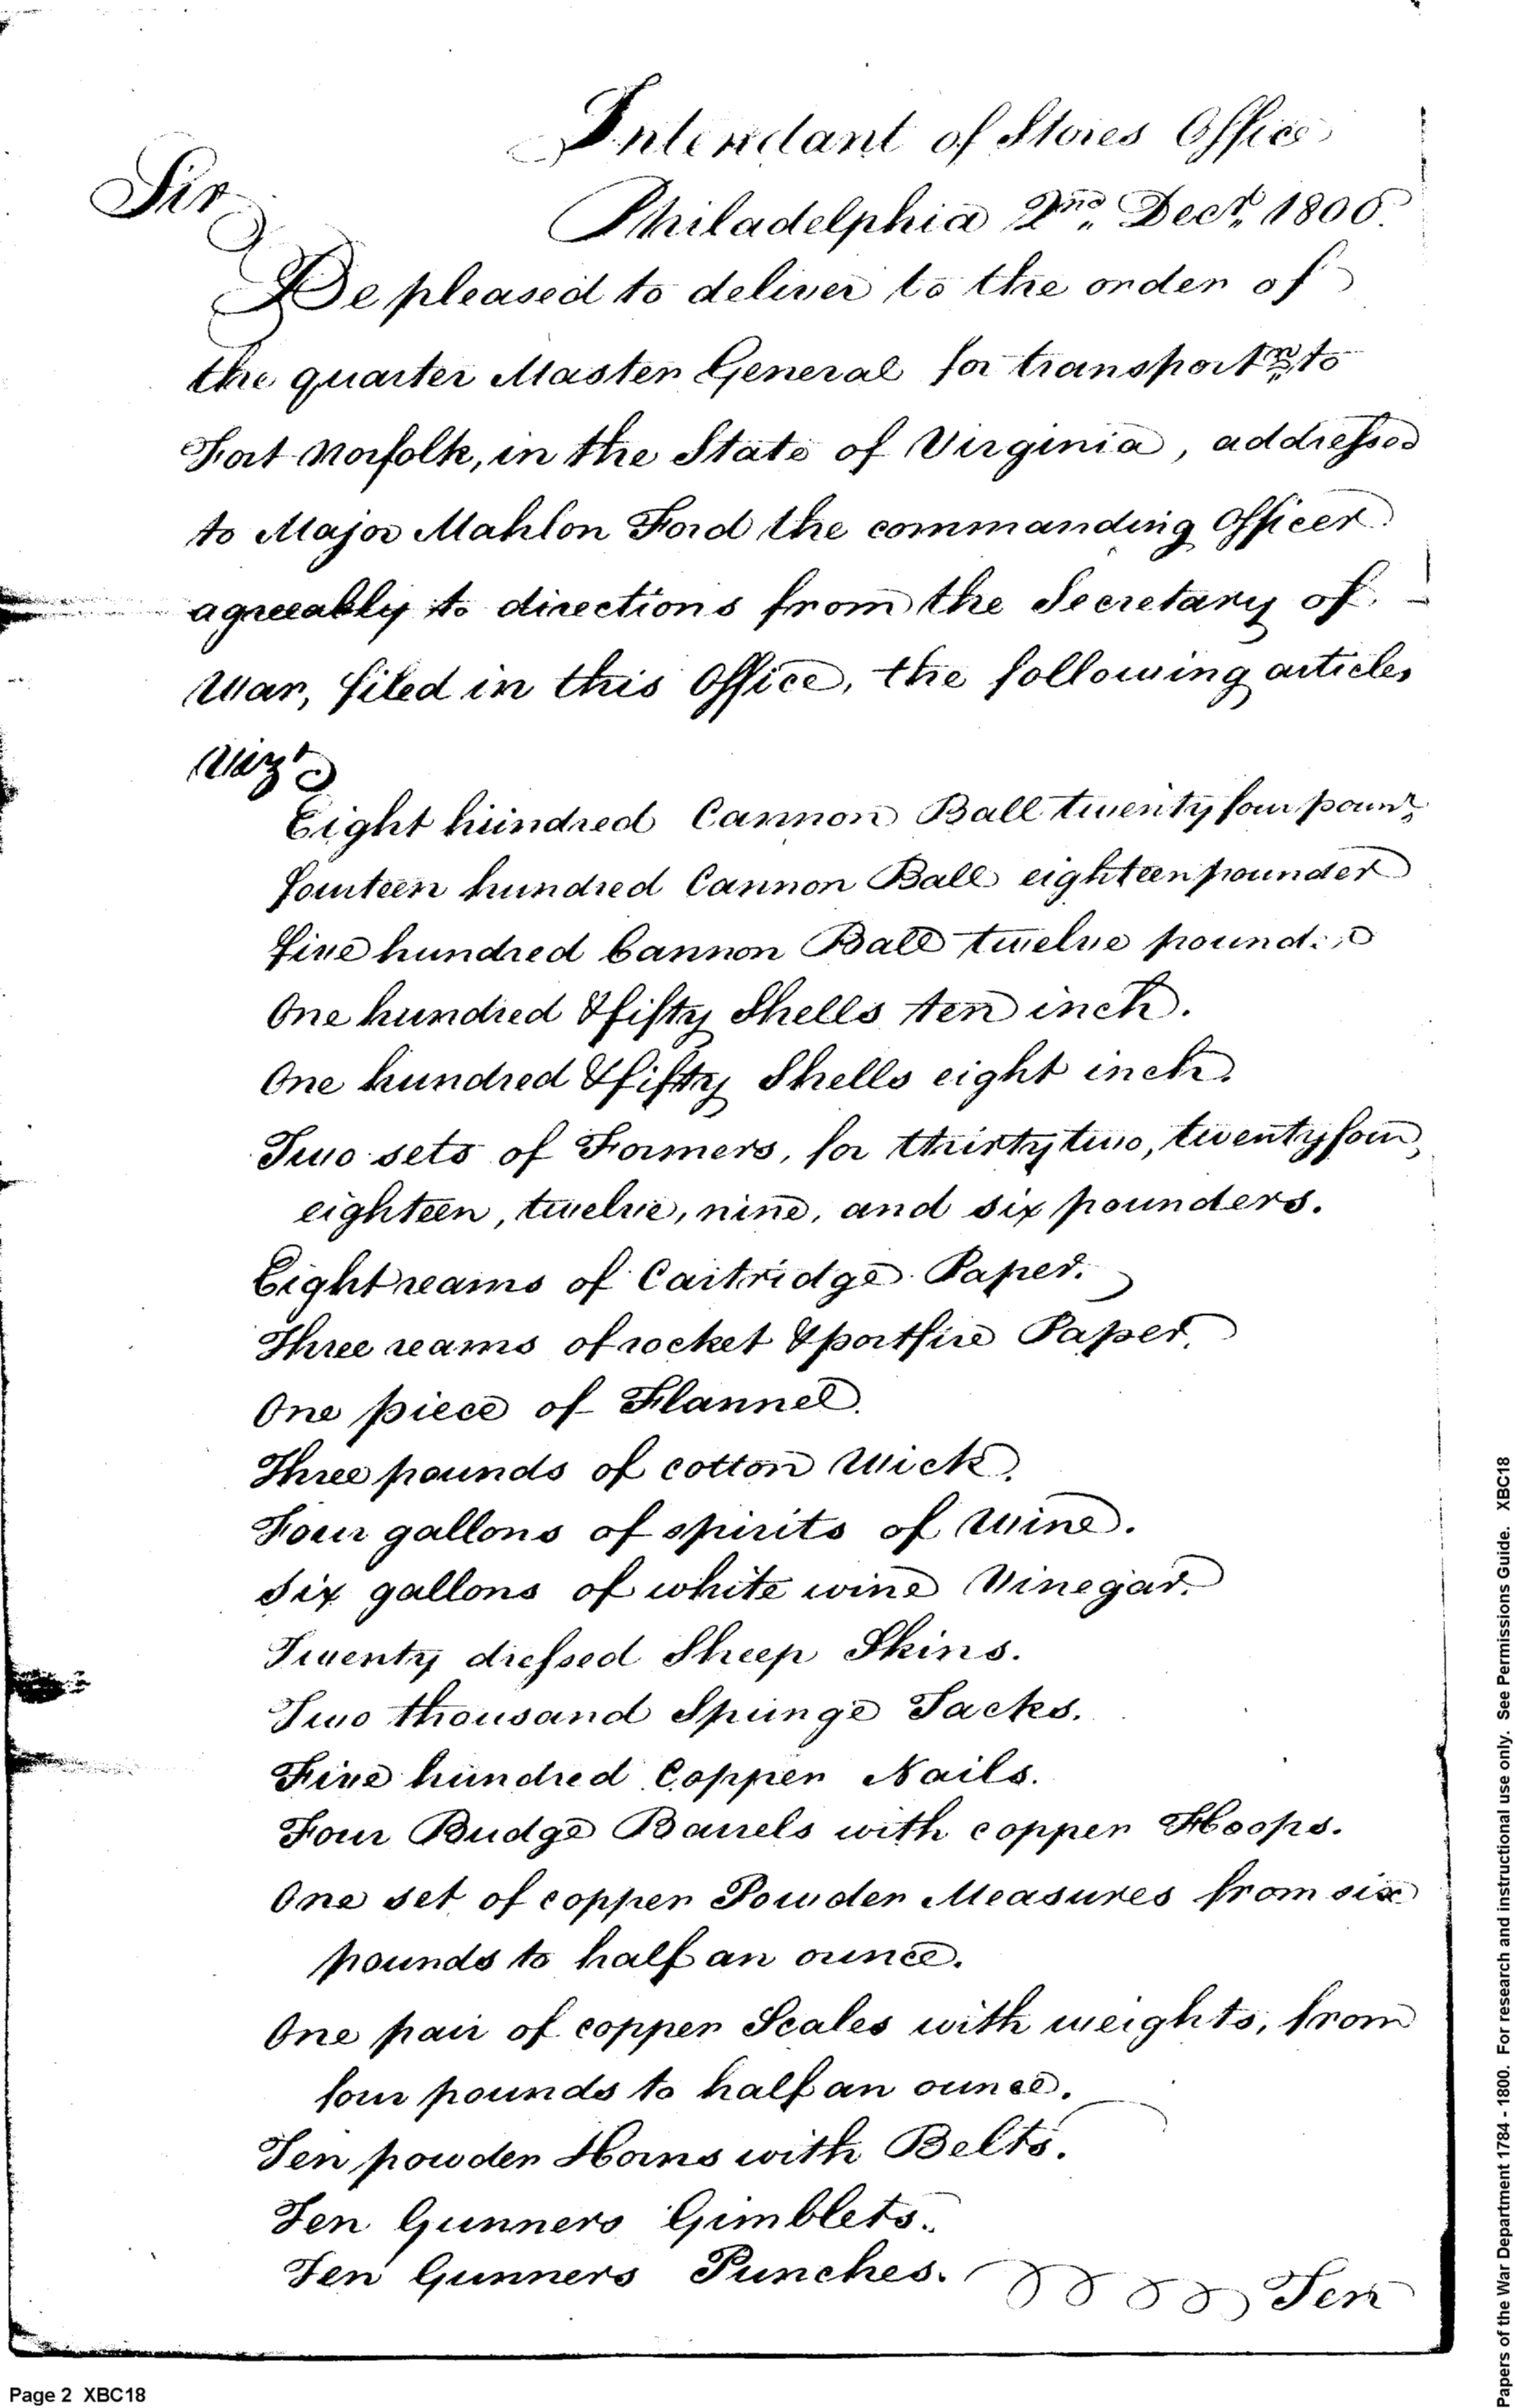 Intendant of Stores Office
Sir
Philadelphia 2nd Decr. 1800.
Be pleased to deliver to the order of
the quarter Master General for transportn to
Fort Norfolk, in the State of Virginia, addressed
to Major Mahlon Ford the commanding Officer
agreeably to directions from the Secretary of
War, filed in this Office, the following articles
Vizt
Eight hundred Cannon Ball twenty four pounr
fourteen hundred Cannon Ball eighteen pounder
five hundred Cannon Ball twelve pounder
One hundred & fifty Shells ten inch.
One hundred & fifty Shells eight inch.
Two sets of Formers, for thirty two, twenty four,
eighteen, twelve, nine, and six pounders.
Eight reams of Cartridge Paper.
Three reams of rocket & portfire Paper.
One piece of Flannel.
Three pounds of cotton Wick.
Four gallons of spirits of Wine.
Six gallons of white wine Vinegar.
Twenty dressed Sheep Skins.
Two thousand Spunge Tacks.
Five hundred Copper Nails.
Four Budge Barrels with copper Hoops.
One set of copper Powder Measures from six
pounds to half an ounce.
One pair of copper Scales with weights, from
four pounds to half an ounce.
Ten powder Horns with Belts.
Ten Gunners Gimblets.
Ten Gunners Punches.
Ten
Page 2 XBC18
Papers of the War Department 1784 - 1800. For research and instructional use only. See Permissions Guide. XBC18